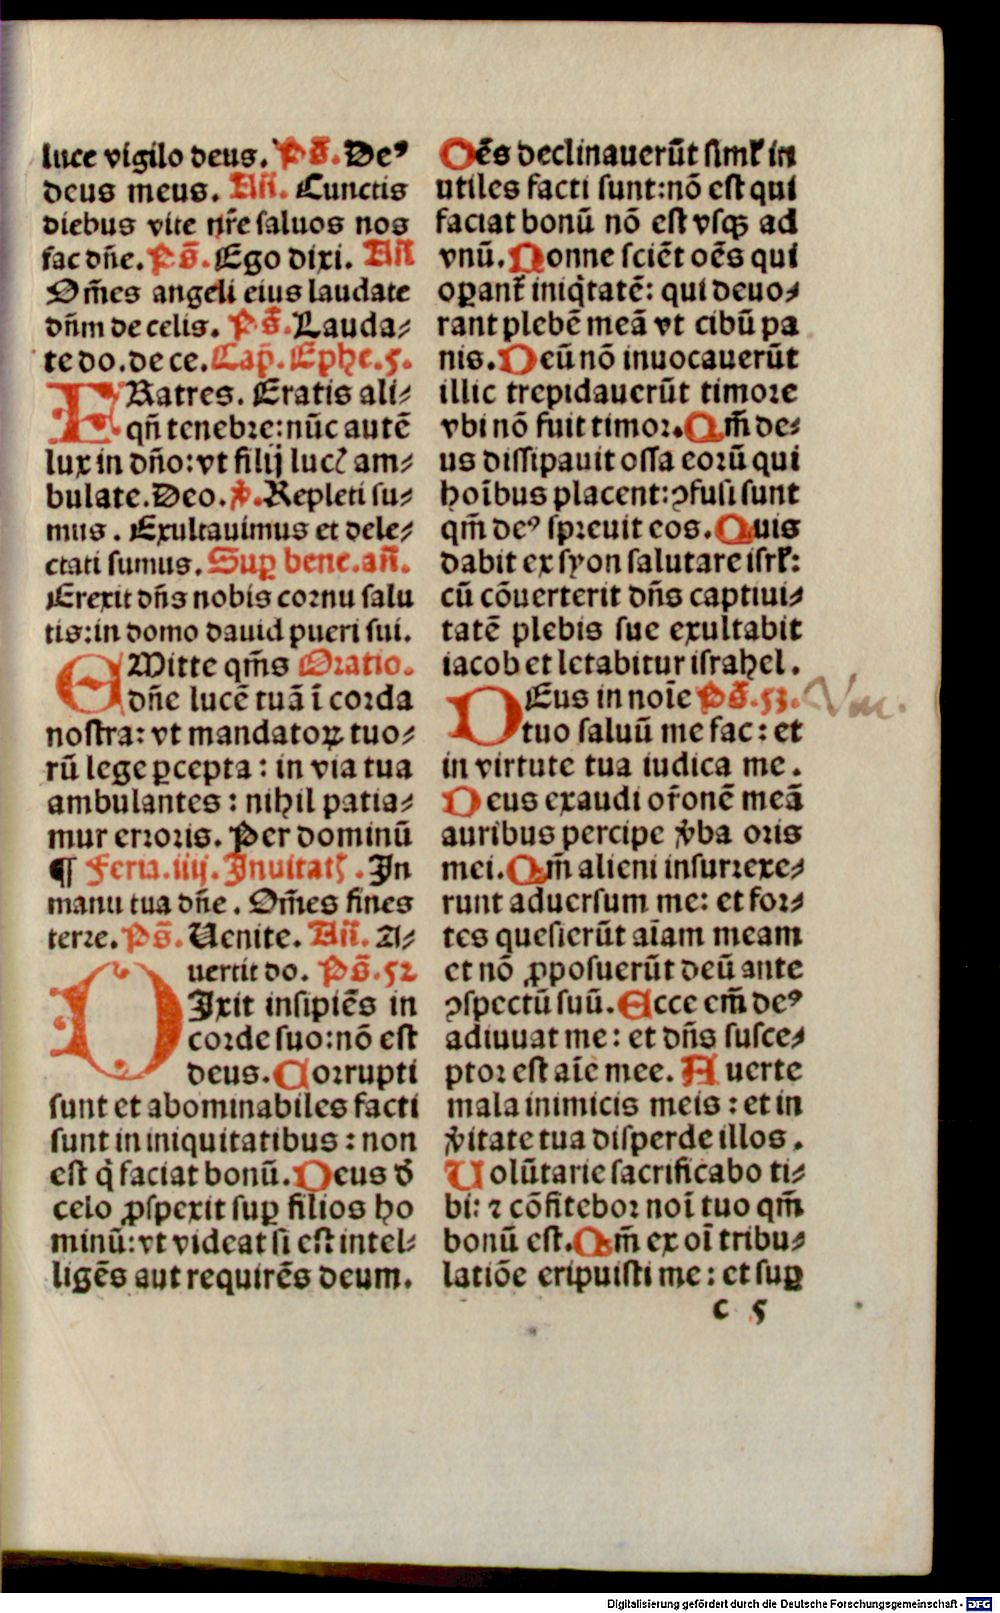 luce vigilo deus. Ps̄. Deꝰ
deus meus. Añ. Cunctis
diebus vite nr̄e saluos nos
fac dñe. Ps̄. Ego dixi. Añ
Om̄es angeli eius laudate
dñm de celis. Ps̄. Lauda⸗
te do. de ce. Cap̄. Ephe. 5.
FRatres. Eratis ali⸗
qñ tenebre: nūc autē
lux in dño: vt filij lucꝭ am⸗
bulate. Deo. ꝟ. Repleti su⸗
mus. Exultauimus et dele⸗
ctati sumus. Suꝑ bene. añ.
Erexit dñs nobis cornu salu
tis: in domo dauid pueri sui.
EMitte qm̄s Oratio.
dñe lucē tuā ī corda
nostra: vt mandatoꝝ tuo⸗
rū lege ꝑcepta: in via tua
ambulantes: nihil patia⸗
mur erroris. Per dominū
¶ Feria. iiij. Inuitatꝭ. In
manu tua dñe. Om̄es fines
terre. Ps̄. Uenite. Añ. A⸗
uertit do. Ps̄. 52
DIxit insipiēs in
corde suo: nō est
deus. Corrupti
sunt et abominabiles facti
sunt in iniquitatibus: non
est q̇ faciat bonū. Deus ð
celo ꝓspexit suꝑ filios ho
minū: vt videat si est intel⸗
ligēs aut requirēs deum.
Oēs declinauerūt siml̄ in
utiles facti sunt: nō est qui
faciat bonū nō est vsqꝫ ad
vnū. Nonne sciēt oēs qui
oꝑant᷑ iniq̇tatē: qui deuo⸗
rant plebē meā vt cibū pa
nis. Deū nō inuocauerūt
illic trepidauerūt timore
vbi nō fuit timor. Qm̄ de⸗
us dissipauit ossa eorū qui
hoībus placent: ꝯfusi sunt
qm̄ deꝰ spreuit eos. Quis
dabit ex syon salutare isrl̄:
cū cōuerterit dñs captiui⸗
tatē plebis sue exultabit
iacob et letabitur israhel.
DEus in noīe Ps̄. 53.
tuo saluū me fac: et
in virtute tua iudica me.
Deus exaudi or̄onē meā
auribus percipe ꝟba oris
mei. Qm̄ alieni insurrexe⸗
runt aduersum me: et for⸗
tes quesierūt aīam meam
et nō ꝓposuerūt deū ante
ꝯspectū suū. Ecce em̄ deꝰ
adiuuat me: et dñs susce⸗
ptor est aīe mee. Auerte
mala inimicis meis: et in
ꝟitate tua disperde illos.
Uolūtarie sacrificabo ti⸗
bi: ⁊ cōfitebor noī tuo qm̄
bonū est. Qm̄ ex oī tribu⸗
latiōe eripuisti me: et suꝑ
c 5
Digitalisierung gefördert durch die Deutsche Forschungsgemeinschaft - DFG